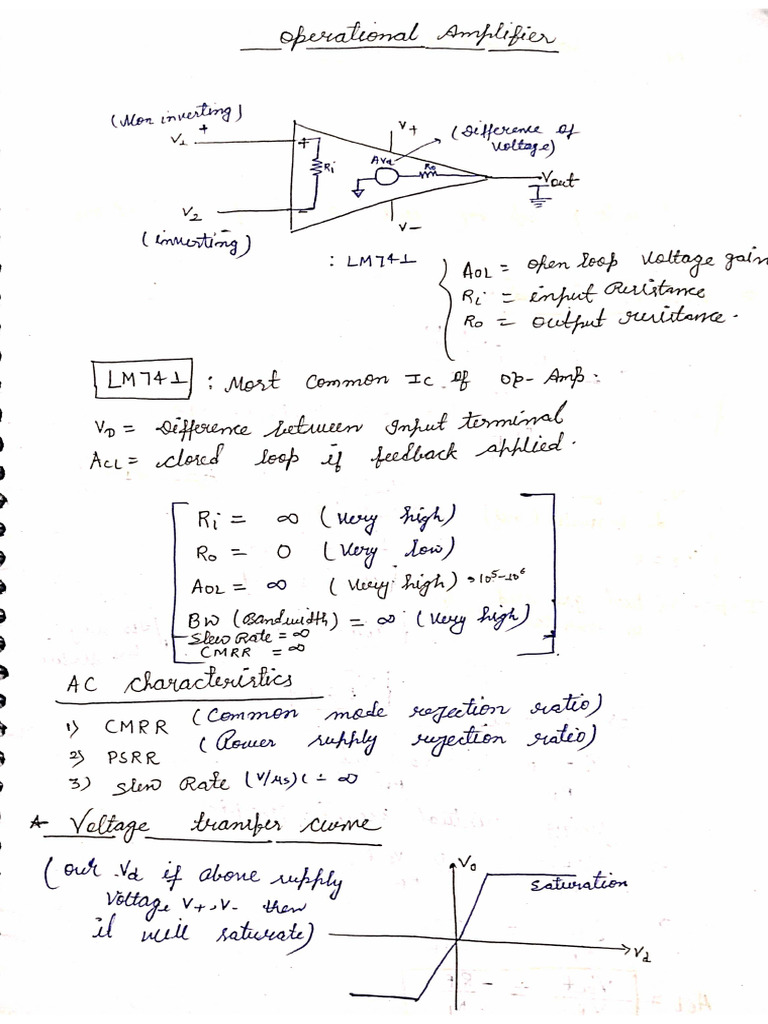 Operational Amplifier
(Non inverting)
V1 +
V+
(Difference of
voltage)
+
Ri
AVd
Ro
Vout
V2
-
V-
(inverting)
: LM741
AOL = open loop voltage gain
Ri = input Resistance
Ro = output resistance.
LM741 : Most Common IC of OP-Amp.
VD = Difference between Input terminal
ACL = closed loop if feedback applied.
Ri = ∞ (Very high)
Ro = 0 (Very low)
AOL = ∞ (Very high) 10^5-10^6
BW (Bandwidth) = ∞ (Very high)
Slew Rate = ∞
CMRR = ∞
AC characteristics
1) CMRR (Common mode rejection ratio)
2) PSRR (Power supply rejection ratio)
3) Slew Rate (V/μs) (= ∞
Voltage transfer curve
(our Vd if above supply
voltage V+, V- then
it will saturate)
Vo
Saturation
Vd